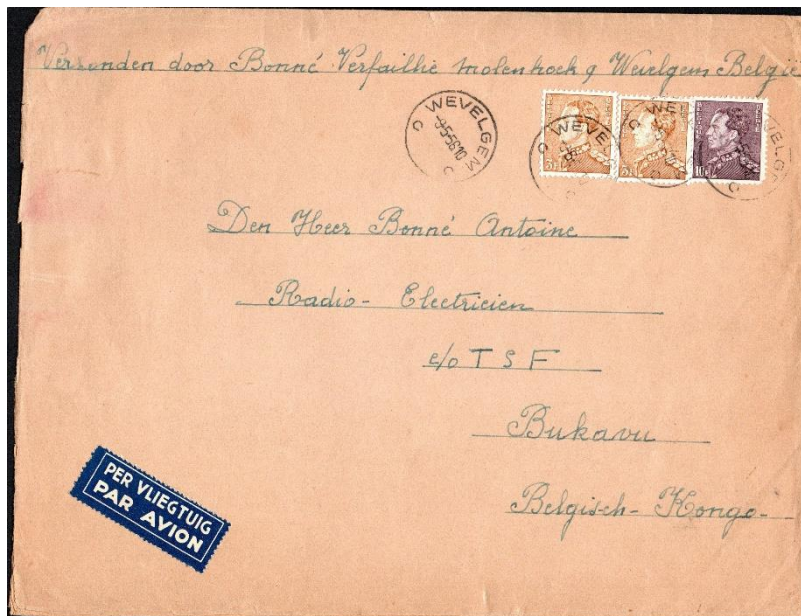 Verzonden door Bonné Verfaillie molenhoek 9 Wevelgem België
WEVELGEM
9-5-56 10
3F
3F
10F
Den Heer Bonné Antoine
Radio- Electricien
c/o T S F
Bukavu
Belgisch- Kongo-
PER VLIEGTUIG
PAR AVION